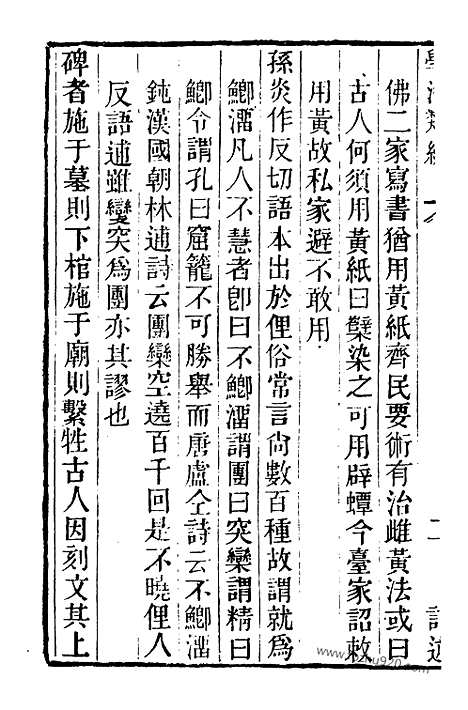 佛二家寫書猶用黃紙齊民要術有治雌黃法或曰
古人何須用黃紙曰檗染之可用辟蟫今臺家詔敕
用黃故私家避不敢用
孫炎作反切語本出於俚俗常言尙數百種故謂就爲
鯽溜凡人不慧者卽曰不鯽溜謂團曰突欒謂精曰
鯽令謂孔曰窟籠不可勝舉而唐盧仝詩云不鯽溜
鈍漢國朝林逋詩云團欒空遶百千回是不曉俚人
反語逋雖變突爲團亦其謬也
碑者施于墓則下棺施于廟則繫牲古人因刻文其上